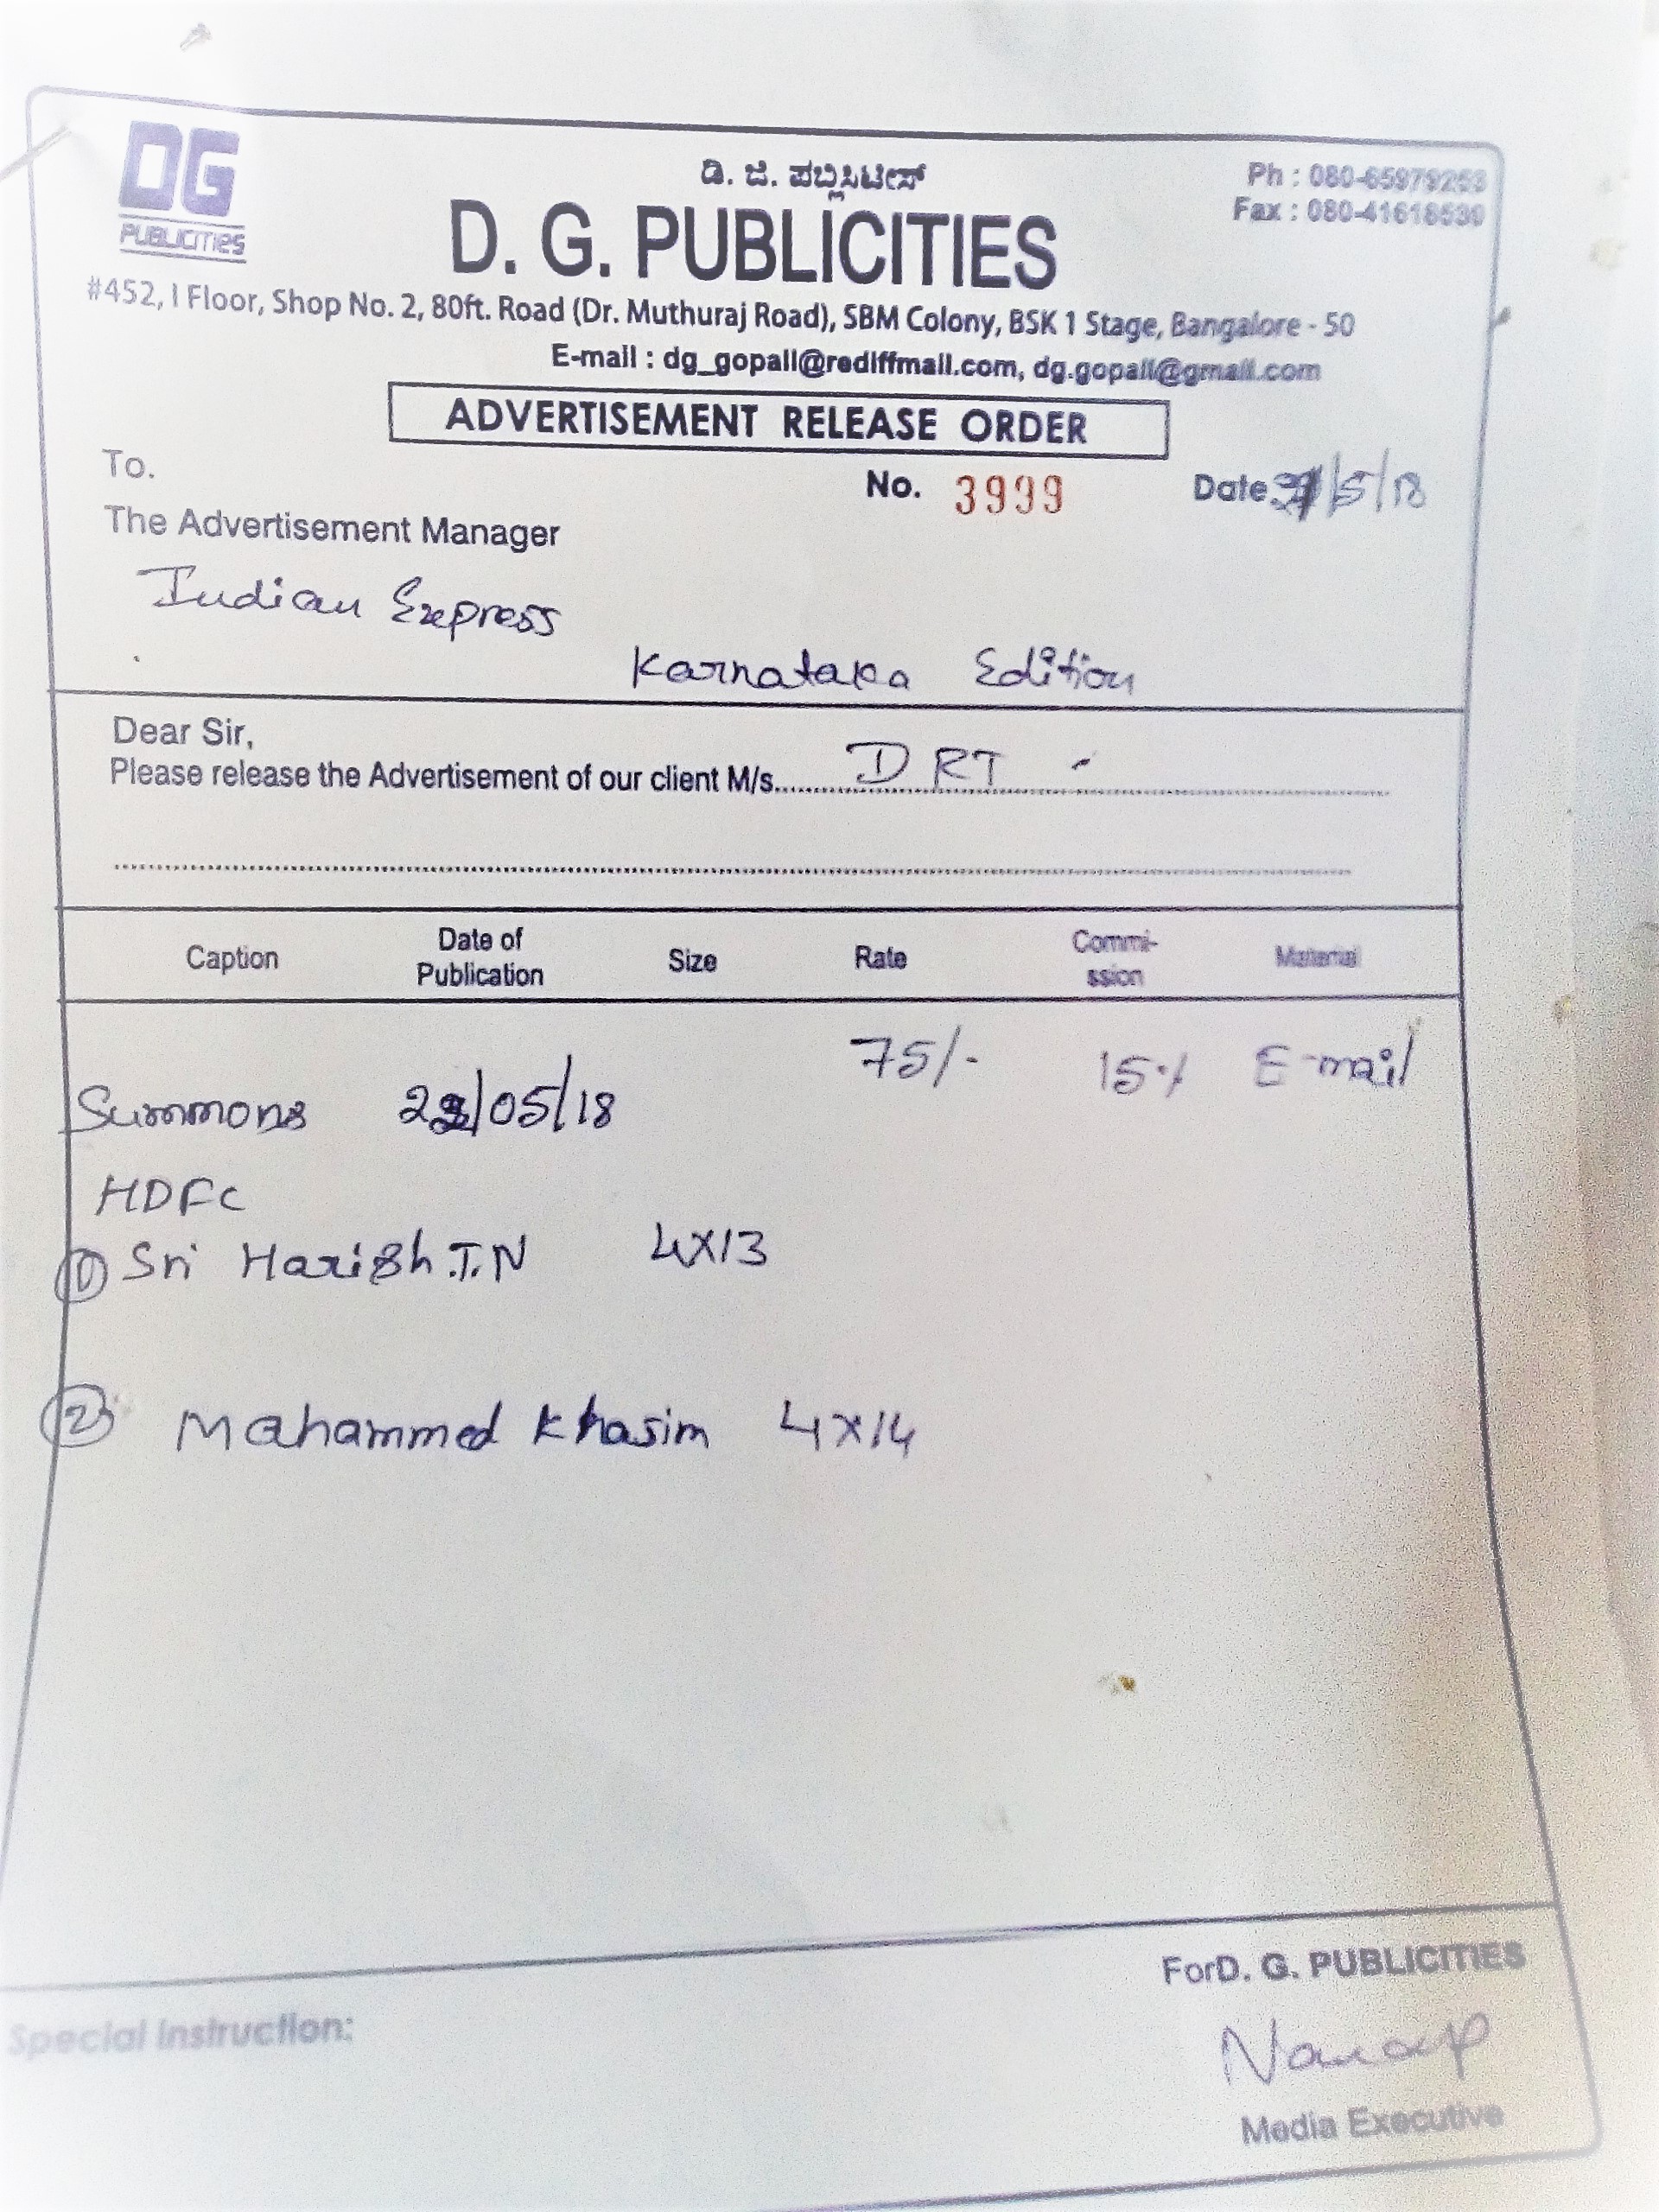 DG
PUBLICITIES
ಡಿ. ಜಿ. ಪಬ್ಲಿಸಿಟೀಸ್
D. G. PUBLICITIES
Ph : 080-65979253
Fax : 080-41618530
#452, I Floor, Shop No. 2, 80ft. Road (Dr. Muthuraj Road), SBM Colony, BSK 1 Stage, Bangalore - 50
E-mail : dg_gopall@rediffmail.com, dg.gopall@gmail.com
ADVERTISEMENT RELEASE ORDER
To.
No. 3999 Date /5/18
The Advertisement Manager
Indian Express
Karnataka Edition
Dear Sir,
Please release the Advertisement of our client M/s. DRT -
Caption Date of Publication Size Rate Commi-ssion Material
75/- 15% E-mail
Summons /05/18
HDFC
① Sri Harish.T.N 4X13
② Mahammed Khasim 4X14
ForD. G. PUBLICITIES
Special Instruction:
Media Executive